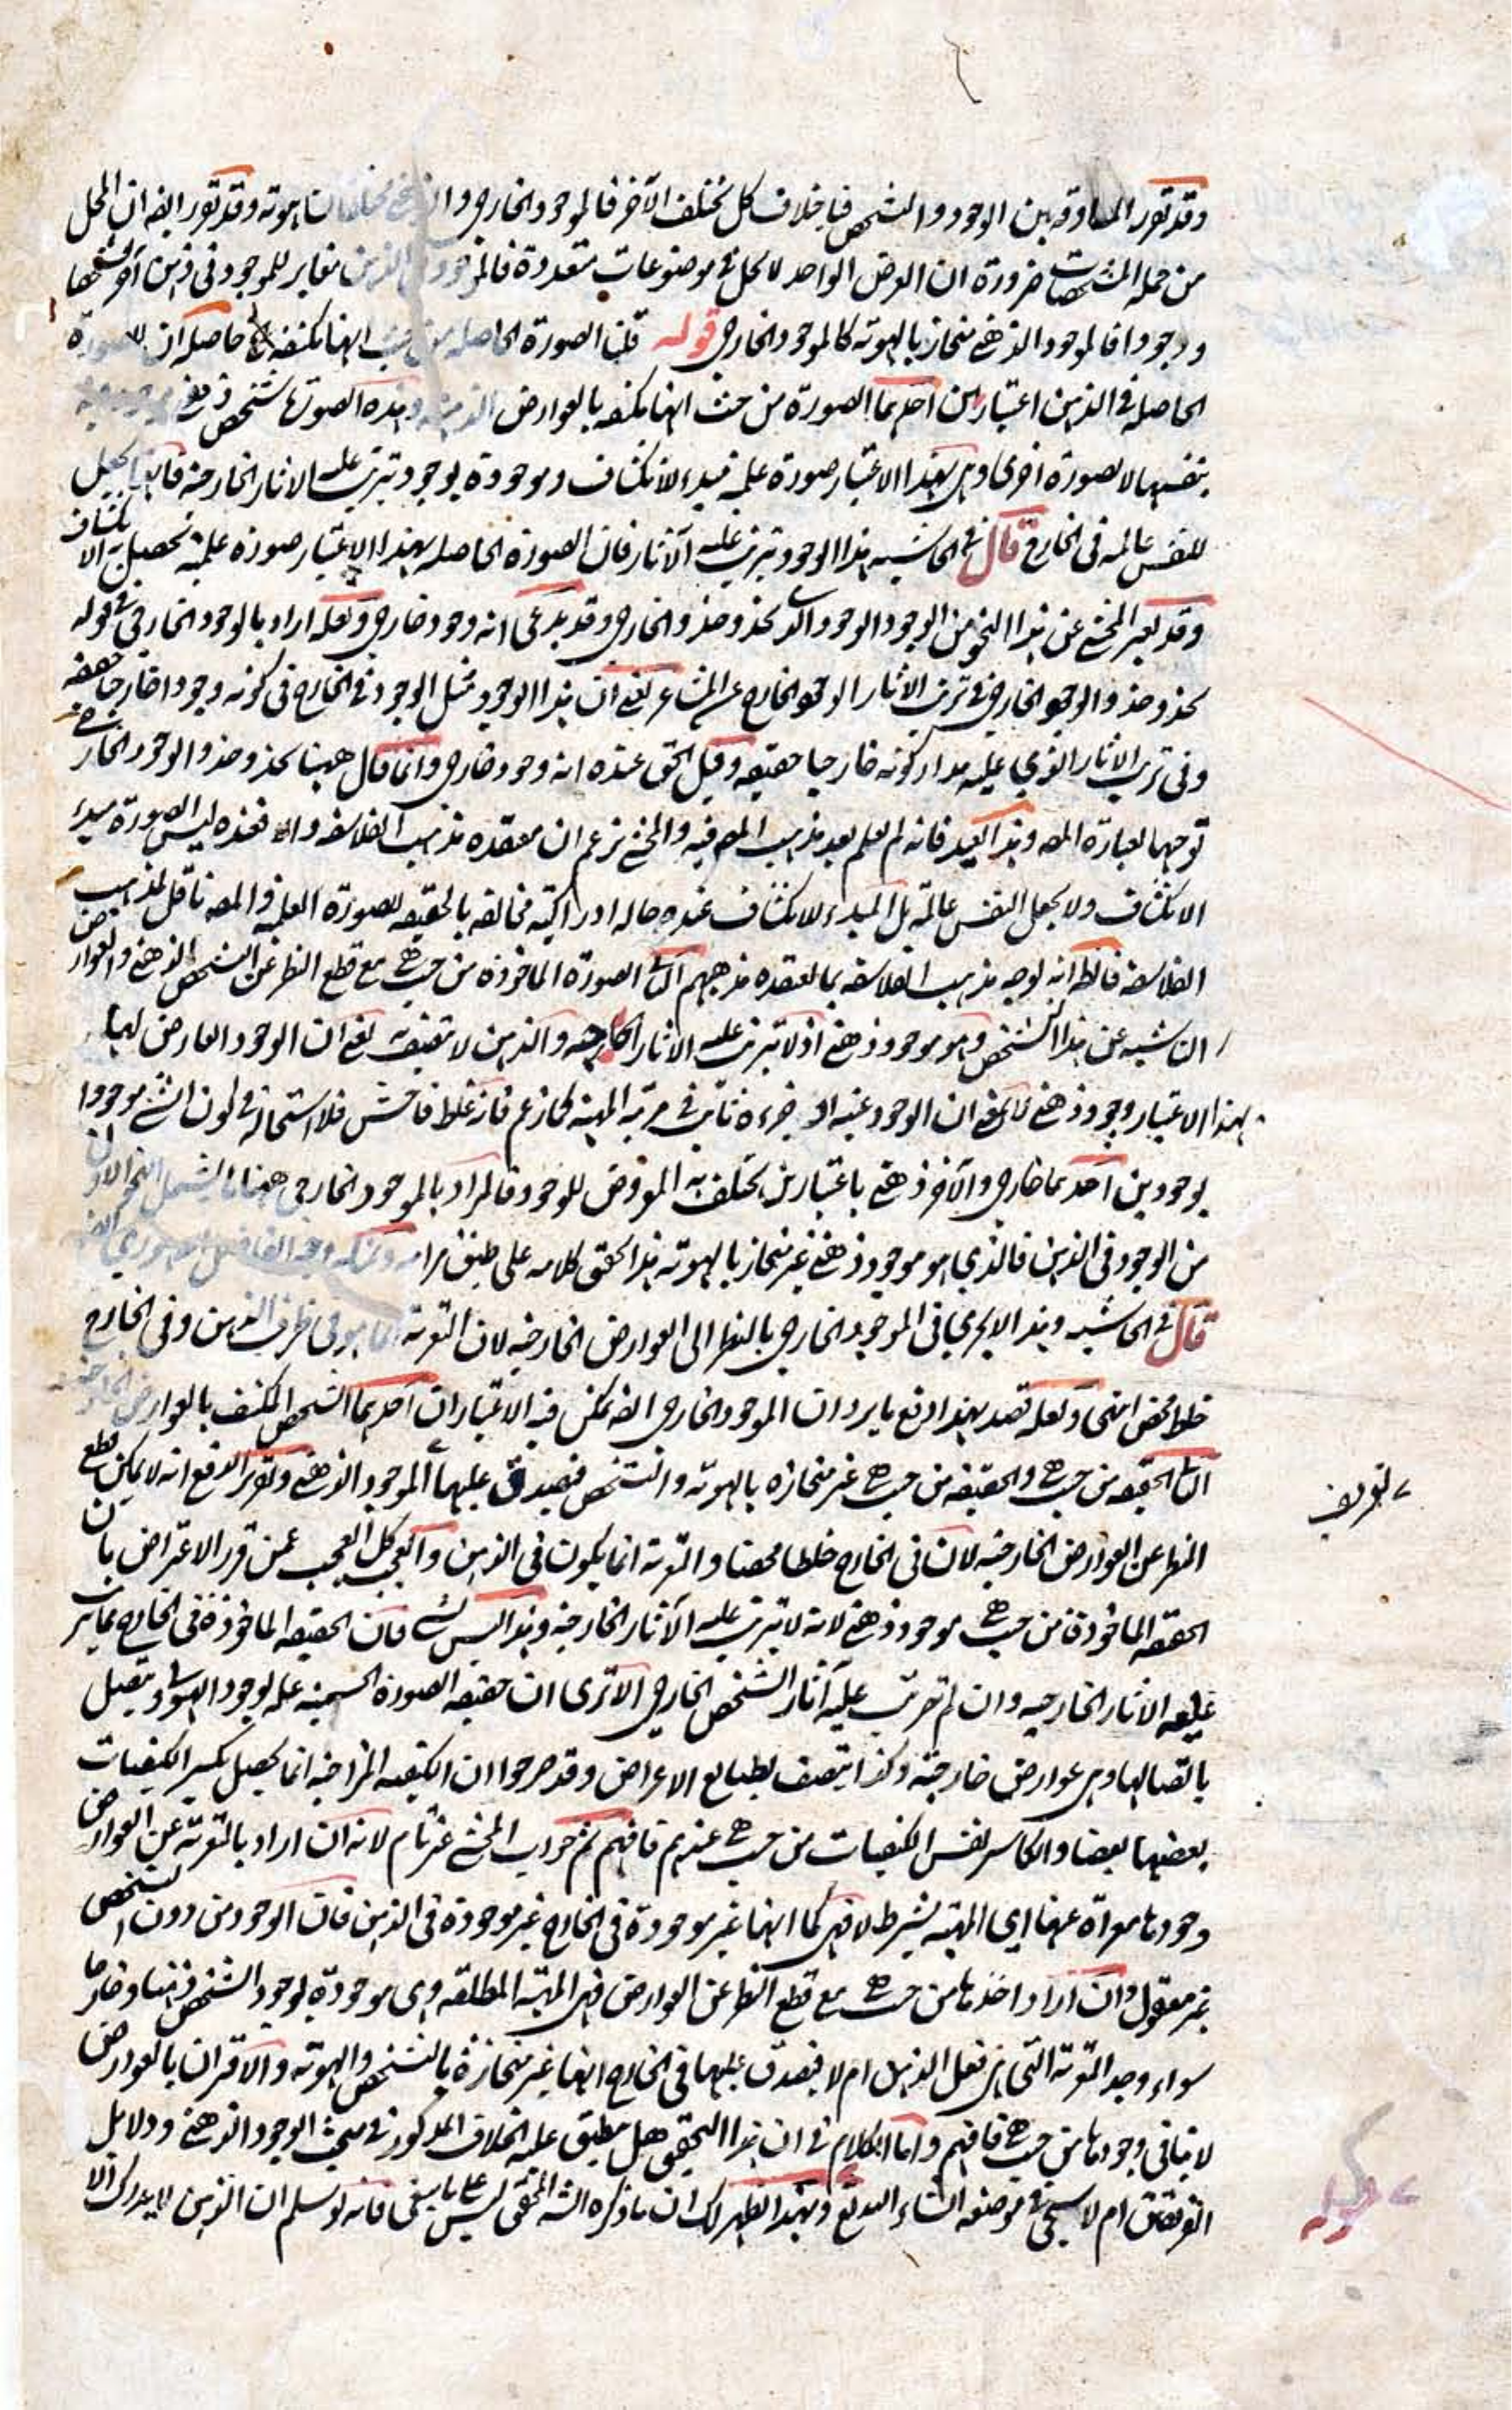 وقد تقرر المساوقة بين الوجود والتشخص فباختلاف كل يختلف الآخر فالموجود الخارجي و بالهوية وقد تقرر ايضا ان المحل
من جملة المشخصات ضرورة ان العرض الواحد لا يحل في موضوعات متعددة فالموجود في الذهن مغاير للموجود في ذهن آخر تشخصا
ووجودا فالموجود الذهني منحاز بالهوية كالموجود الخارجي قوله قلنا الصورة الحاصلة من حيث انها مكتنفة حاصله ان للصورة
الحاصلة في الذهن اعتبارين احدهما الصورة من حيث انها مكتنفة بالعوارض الذهنية وهذه الصورة شخص ذهني
بنفسها لا بصورة اخرى وهي بهذا الاعتبار صورة علمية مبدء للانكشاف وموجودة بوجود تترتب عليه الاثار الخارجية فانها تجعل
للنفس عالمة في الخارج قال في الحاشية هذا الوجود تترتب عليه الآثار فان الصورة الحاصلة بهذا الاعتبار صورة علمية تحصل به الانكشاف
وقد يعبر المحشي عن هذا النحو من الوجود الوجود الذي يحذو حذو الخارجي وقد يدعى انه وجود خارجي ولعله اراد بالوجود الخارجي في قوله
يحذو حذو الوجود الخارجي في ترتب الاثار الوجود الخارج عن المشاعر يعني ان هذا الوجود مثل الوجود في الخارج في كونه وجودا خارجيا حقيقة
وفي ترتب الاثار الذي عليه مدار كونه خارجيا حقيقة وقيل الحق عنده انه وجود خارجي وانما قال ههنا يحذو حذو الوجود الخارجي
توجيها لعبارة المصـ وهذا بعيد فانه لم يعلم بعد مذهب المصـ فيه والمحشي يزعم ان معتقده مذهب الفلاسفة والا فعنده ليس الصورة مبدء
الانكشاف ولا يجعل النفس عالمة بل المبدء للانكشاف عنده حالة ادراكية مخالفة بالحقيقة للصورة العلمية والمصـ ناقل لمذهب
الفلاسفة فالظـ انه يوجه مذهب الفلاسفة بما يعتقده مذهبهم الثاني الصورة الماخوذة من حيث هي مع قطع النظر عن التشخص الذهني والعوارض
الناشية عن هذا التشخص وهو موجود ذهني اذ لا تترتب عليه الاثار الخارجية والذهن لا يتصف يعني ان الوجود العارض لها
بهذا الاعتبار وجود ذهني لا يعني ان الوجود عينه او جزءه ثابت في مرتبة المهية كما زعم فانه غلط فاحش فلا استحالة في كون الشئ موجودا
بوجودين احدهما خارجي والآخر ذهني باعتبارين يختلف به المعروض للوجود فالمراد بالموجود الخارجي ههنا ما يشمل النحو الاول
من الوجود في الذهن فالذي هو موجود ذهني غير منحاز بالهوية هذا تحقيق كلامه على طبق مرامه
قال في الحاشية وهذا لا يجري في الموجود الخارجي بالنظر الى العوارض الخارجية لان التعرية انما هو في ظرف الذهن وفي الخارج
خلط محض انتهى ولعله قصد بهذا دفع ما يرد ان الموجود الخارجي ايضا يمكن فيه الاعتباران احدهما الشخص المكتنف بالعوارض الخارجية
الثاني الحقيقة من حيث هي والحقيقة من حيث هي غير منحازة بالهوية والتشخص فيصدق عليها الموجود الذهني وتقرير الدفع انه لا يمكن قطع
النظر عن العوارض الخارجية لان في الخارج خلطا محضا والتعرية انما يكون في الذهن والعجب كل العجب عمن قرر الاعتراض بان
الحقيقة الماخوذة من حيث هي موجود ذهني لانه لا تترتب عليه الآثار الخارجية وهذا ليس بشئ فان الحقيقة الماخوذة في الخارج مما يترتب
عليه الاثار الخارجية وان لم تترتب عليه آثار الشخص الخارجي الا ترى ان حقيقة الصورة الجسمية علة لوجود الهيولى ويتصل
باتصالها وهي عوارض خارجية وكذا يتصف بطبايع الاعراض وقد صرحوا ان الكيفية المزاجية انما يحصل بكسر الكيفيات
بعضها بعضا والكاسر نفس الكيفيات من حيث هي عندهم فافهم ثم جواب المحشي غير تام لانه ان اراد بالتعرية عن العوارض
وجودها معراة عنها اي المهية بشرط لا فهي كما انها غير موجودة في الخارج غير موجودة في الذهن فان الوجود من دون التشخص
غير معقول وان اراد اخذها من حيث هي مع قطع النظر عن العوارض فهي المهية المطلقة وهي موجودة بوجود الشخص ذهنا وخارجا
سواء وجد التعرية التي هي فعل الذهن ام لا فيصدق عليها في الخارج انها غير منحازة بالتشخص والهوية والاقتران بالعوارض
لا ينافي وجودها من حيث هي فافهم واما الكلام في ان هذا التحقيق هل ينطبق عليه الخلاف المذكور في مبحث الوجود الذهني ودلايل
الفريقين ام لا سيجئ في موضعه انشاء الله تعالى وبهذا ظهر لك ان ما ذكره الشـ المحقق ليس على ما ينبغي فانه لو سلم ان الذهن لا يدرك الا
تعريف